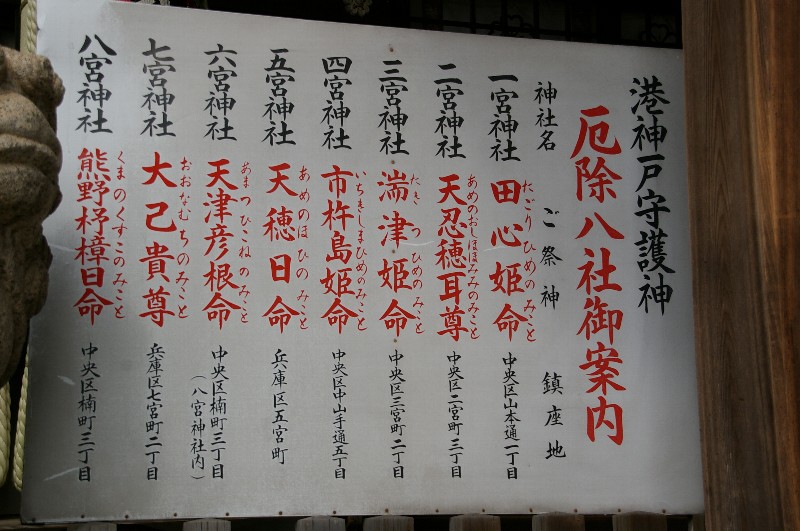 港神戸守護神
厄除八社御案内
神社名 ご祭神 鎮座地
一宮神社 田心姫命 中央区山本通一丁目
たごりひめのみこと
二宮神社 天忍穂耳尊 中央区二宮町三丁目
あめのおしほみみのみこと
三宮神社 湍津姫命 中央区三宮町二丁目
たきつひめのみこと
四宮神社 市杵島姫命 中央区中山手通五丁目
いちきしまひめのみこと
五宮神社 天穂日命 兵庫区五宮町
あめのほひのみこと
六宮神社 天津彦根命 中央区楠町三丁目
あまつひこねのみこと
(八宮神社内)
七宮神社 大己貴尊 兵庫区七宮町二丁目
おおなむちのみこと
八宮神社 熊野杼樟日命 中央区楠町三丁目
くまのくすこのみこと